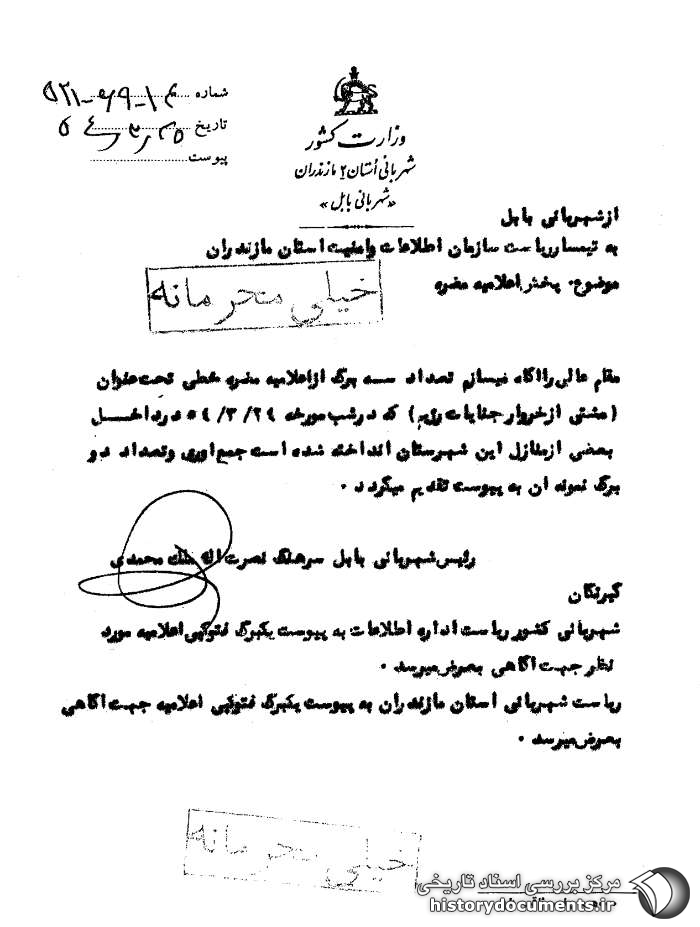 شماره ۵۲۱-۶۹-۱۳
تاریخ
پیوست
وزارت کشور
شهربانی اُستان ۲ مازندران
«شهربانی بابل»
ازشهربانی بابل
به تیمسارریاست سازمان اطلاعات وامنیت استان مازندران
موضوع. پخش اعلامیه مضره
خیلی محرمانه
مقام عالی راآگاه میسازم تعداد سه برگ ازاعلامیه مضره خطی تحت عنوان
(مشتی ازخروار جنایات رژیم) که درشب مورخه ۵۴/۳/۲۴ درداخل
بعضی ازمنازل این شهرستان انداخته شده است جمع آوری وتعداد دو
برگ نمونه ان به پیوست تقدیم میگردد .
رئیس شهربانی بابل سرهنگ نصرت اله ملک محمدی
گیرندگان
شهربانی کشور ریاست اداره اطلاعات به پیوست یکبرگ فتوکپی اعلامیه مورد
نظر جهت آگاهی بعرض میرسد .
ریاست شهربانی استان مازندران به پیوست یکبرگ فتوکپی اعلامیه جهت آگاهی
بعرض میرسد .
خیلی محرمانه
مرکز بررسی اسناد تاریخی
historydocuments.ir